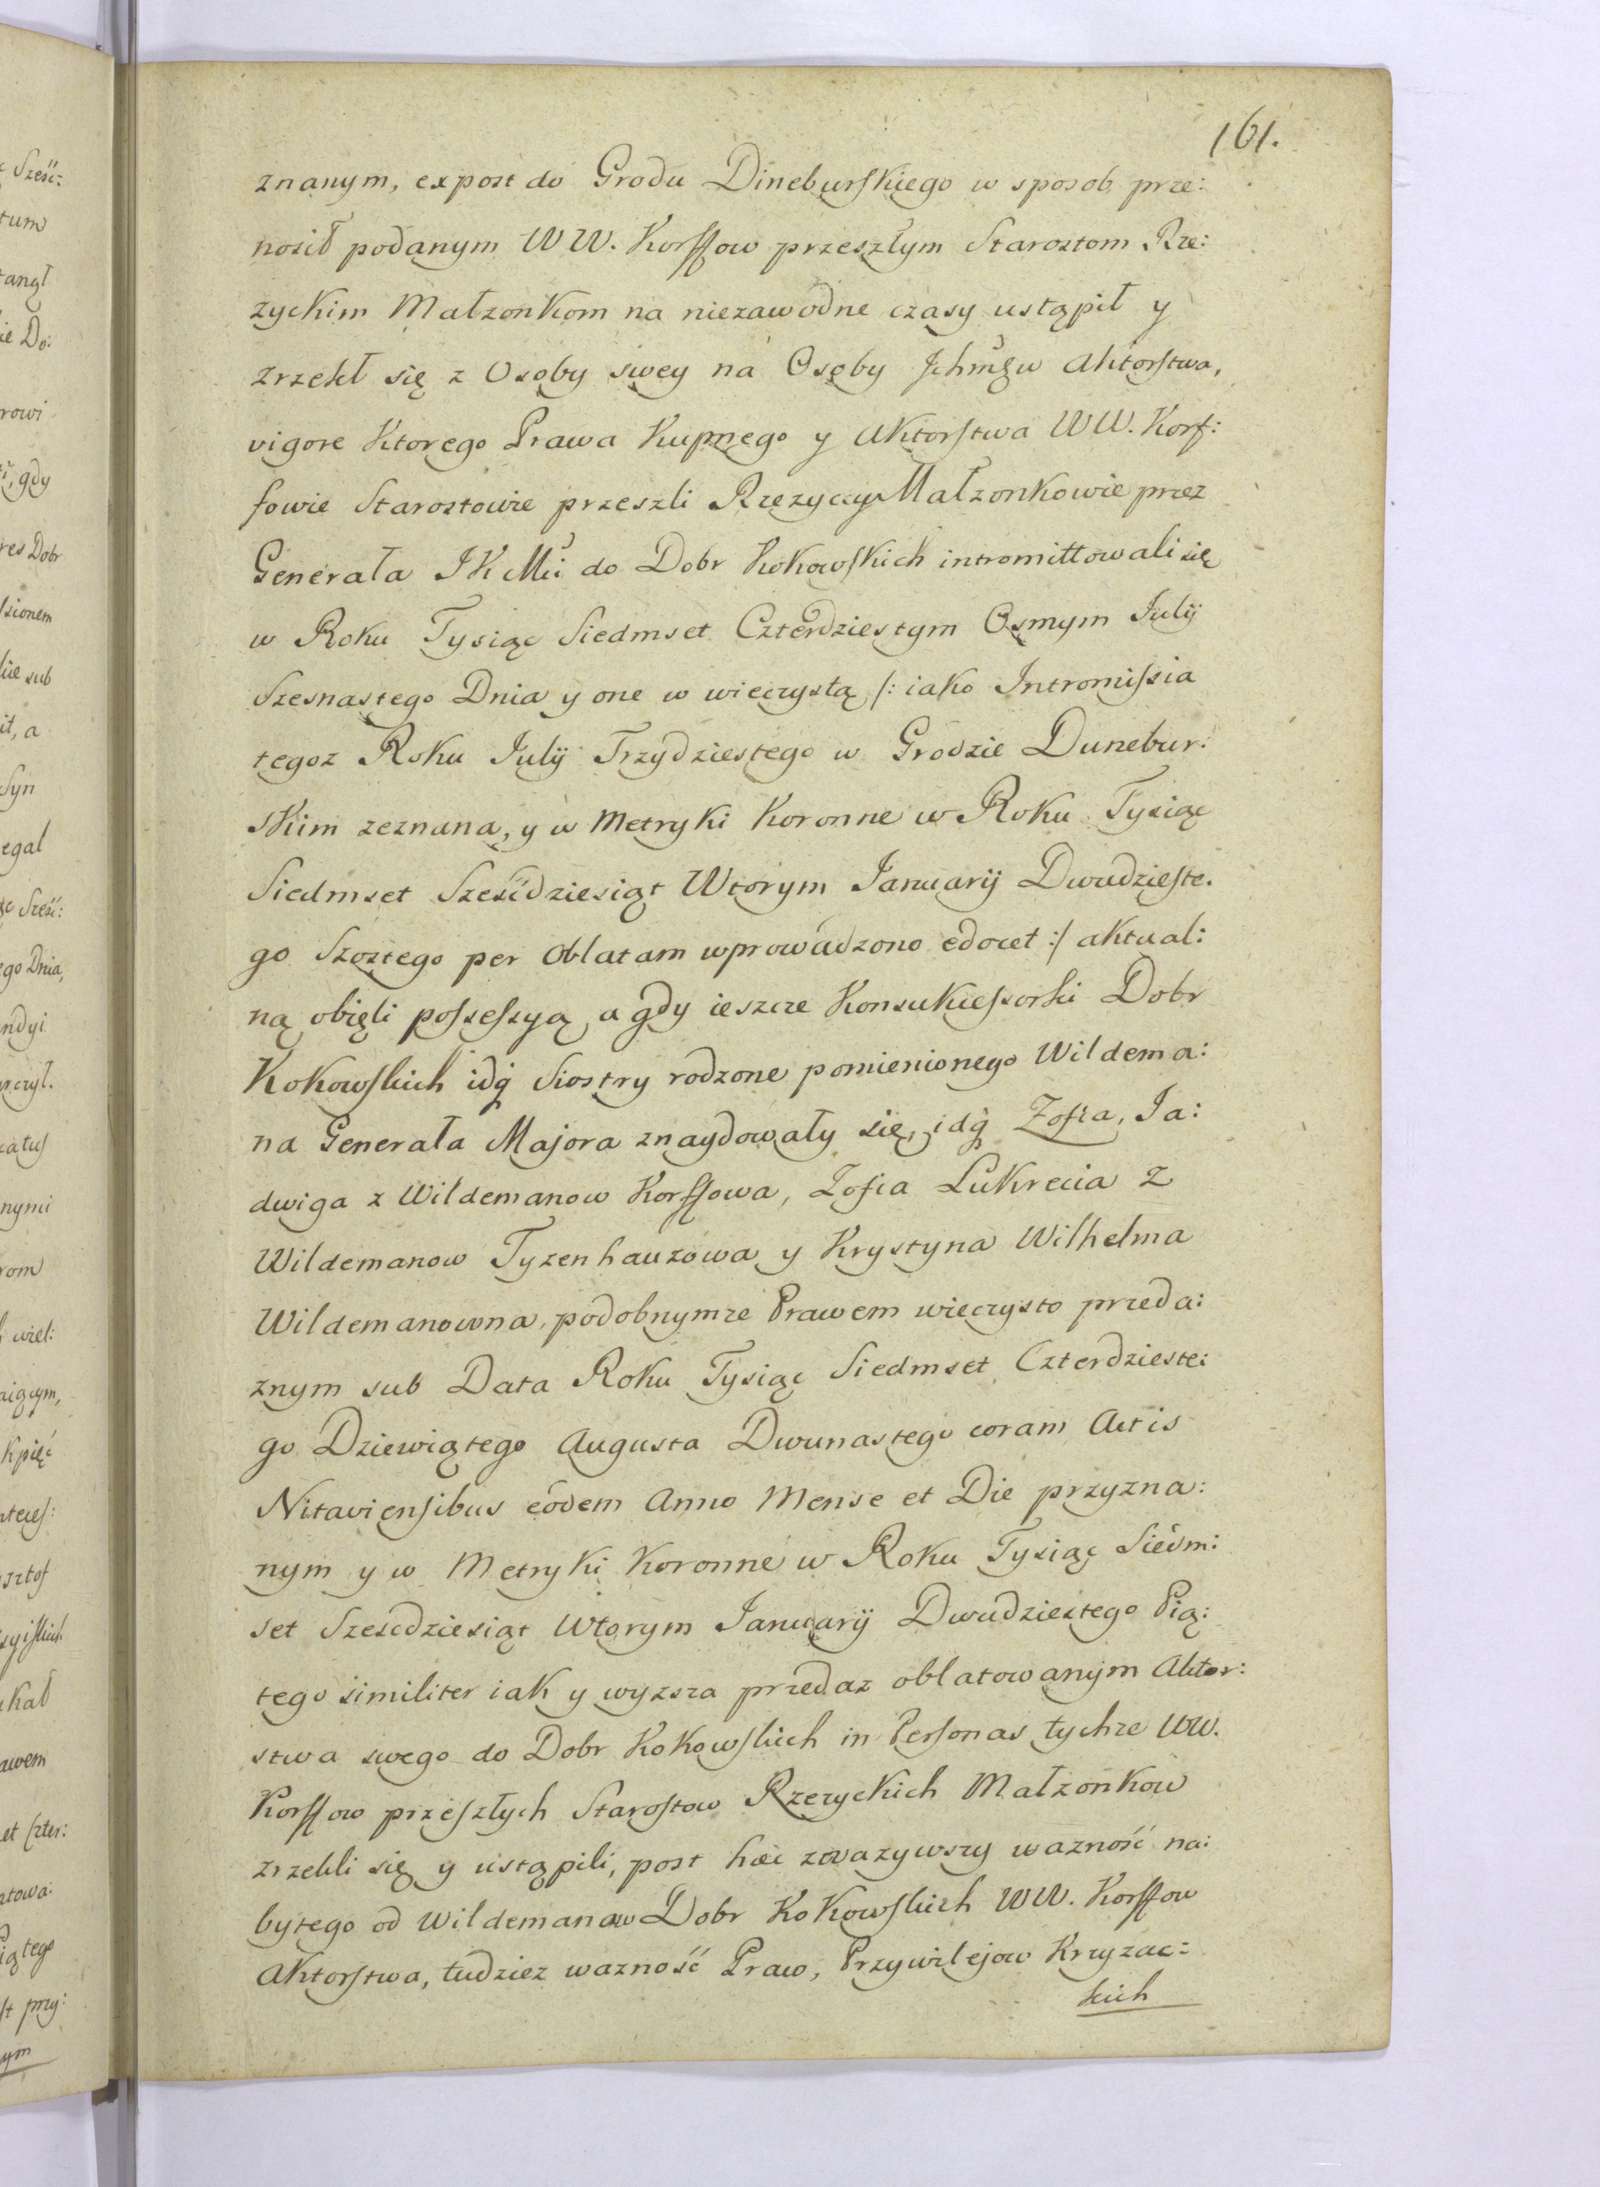 161.
znanym, expost do Grodu Dineburskiego w sposob prze:
nosił podanym WW. Korffow przeszłym Starostom Rze:
zyckim Małzonkom na niezawodne czasy ustąpił y
zrzekł się z Osoby swey na Osoby Ichmćw Aktorstwa,
vigore ktorego Prawa Kupnego y Aktorstwa WW. Korf:
fowie Starostowie przeszli Rzezyccy Małzonkowie przez
Generała JKMci do Dobr Kokowskich intromittowali się
w Roku Tysiąc Siedmset Czterdziestym Osmym July
Szesnastego Dnia y one w wieczystą /: iako Intromissia
tegoz Roku July Trzydziestego w Grodzie Dunebur:
skim zeznana, y w Metryki Koronne w Roku Tysiąc
Siedmset Sześćdziesiąt Wtorym January Dwudzieste.
go Szostego per Oblatam wprowadzono edocet :/ aktual:
ną obięli possessyą, a gdy ieszcze Konsukcessorki Dobr
Kokowskich idq Siostry rodzone pomienionego Wildema:
na Generała Majora znaydowały się, idq Zofia, Ja:
dwiga z Wildemanow Korffowa, Zofia Lukrecia z
Wildemanow Tyzenhauzowa y Krystyna Wilhelma
Wildemanowna, podobnymze Prawem wieczysto przeda:
znym sub Data Roku Tysiąc Siedmset Czterdzieste:
go Dziewiątego Augusta Dwunastego coram Actis
Nitaviensibus eodem Anno Mense et Die przyzna:
nym y w Metryki Koronne w Roku Tysiąc Siedm:
set Szescdziesiąt Wtorym January Dwudziestego Pią:
tego similiter iak y wyzsza przedaz oblatowanym Aktor:
stwa swego do Dobr Kokowskich in Personas tychze WW.
Korffow przeszłych Starostow Rzezyckich Małzonkow
zrzekli się y ustąpili, post hæc zwazywszy wazność na:
bytego od Wildemanow Dobr Kokowskich WW. Korffow
Aktorstwa, tudziez wazność Praw, Przywilejow Krzyzac:
kich